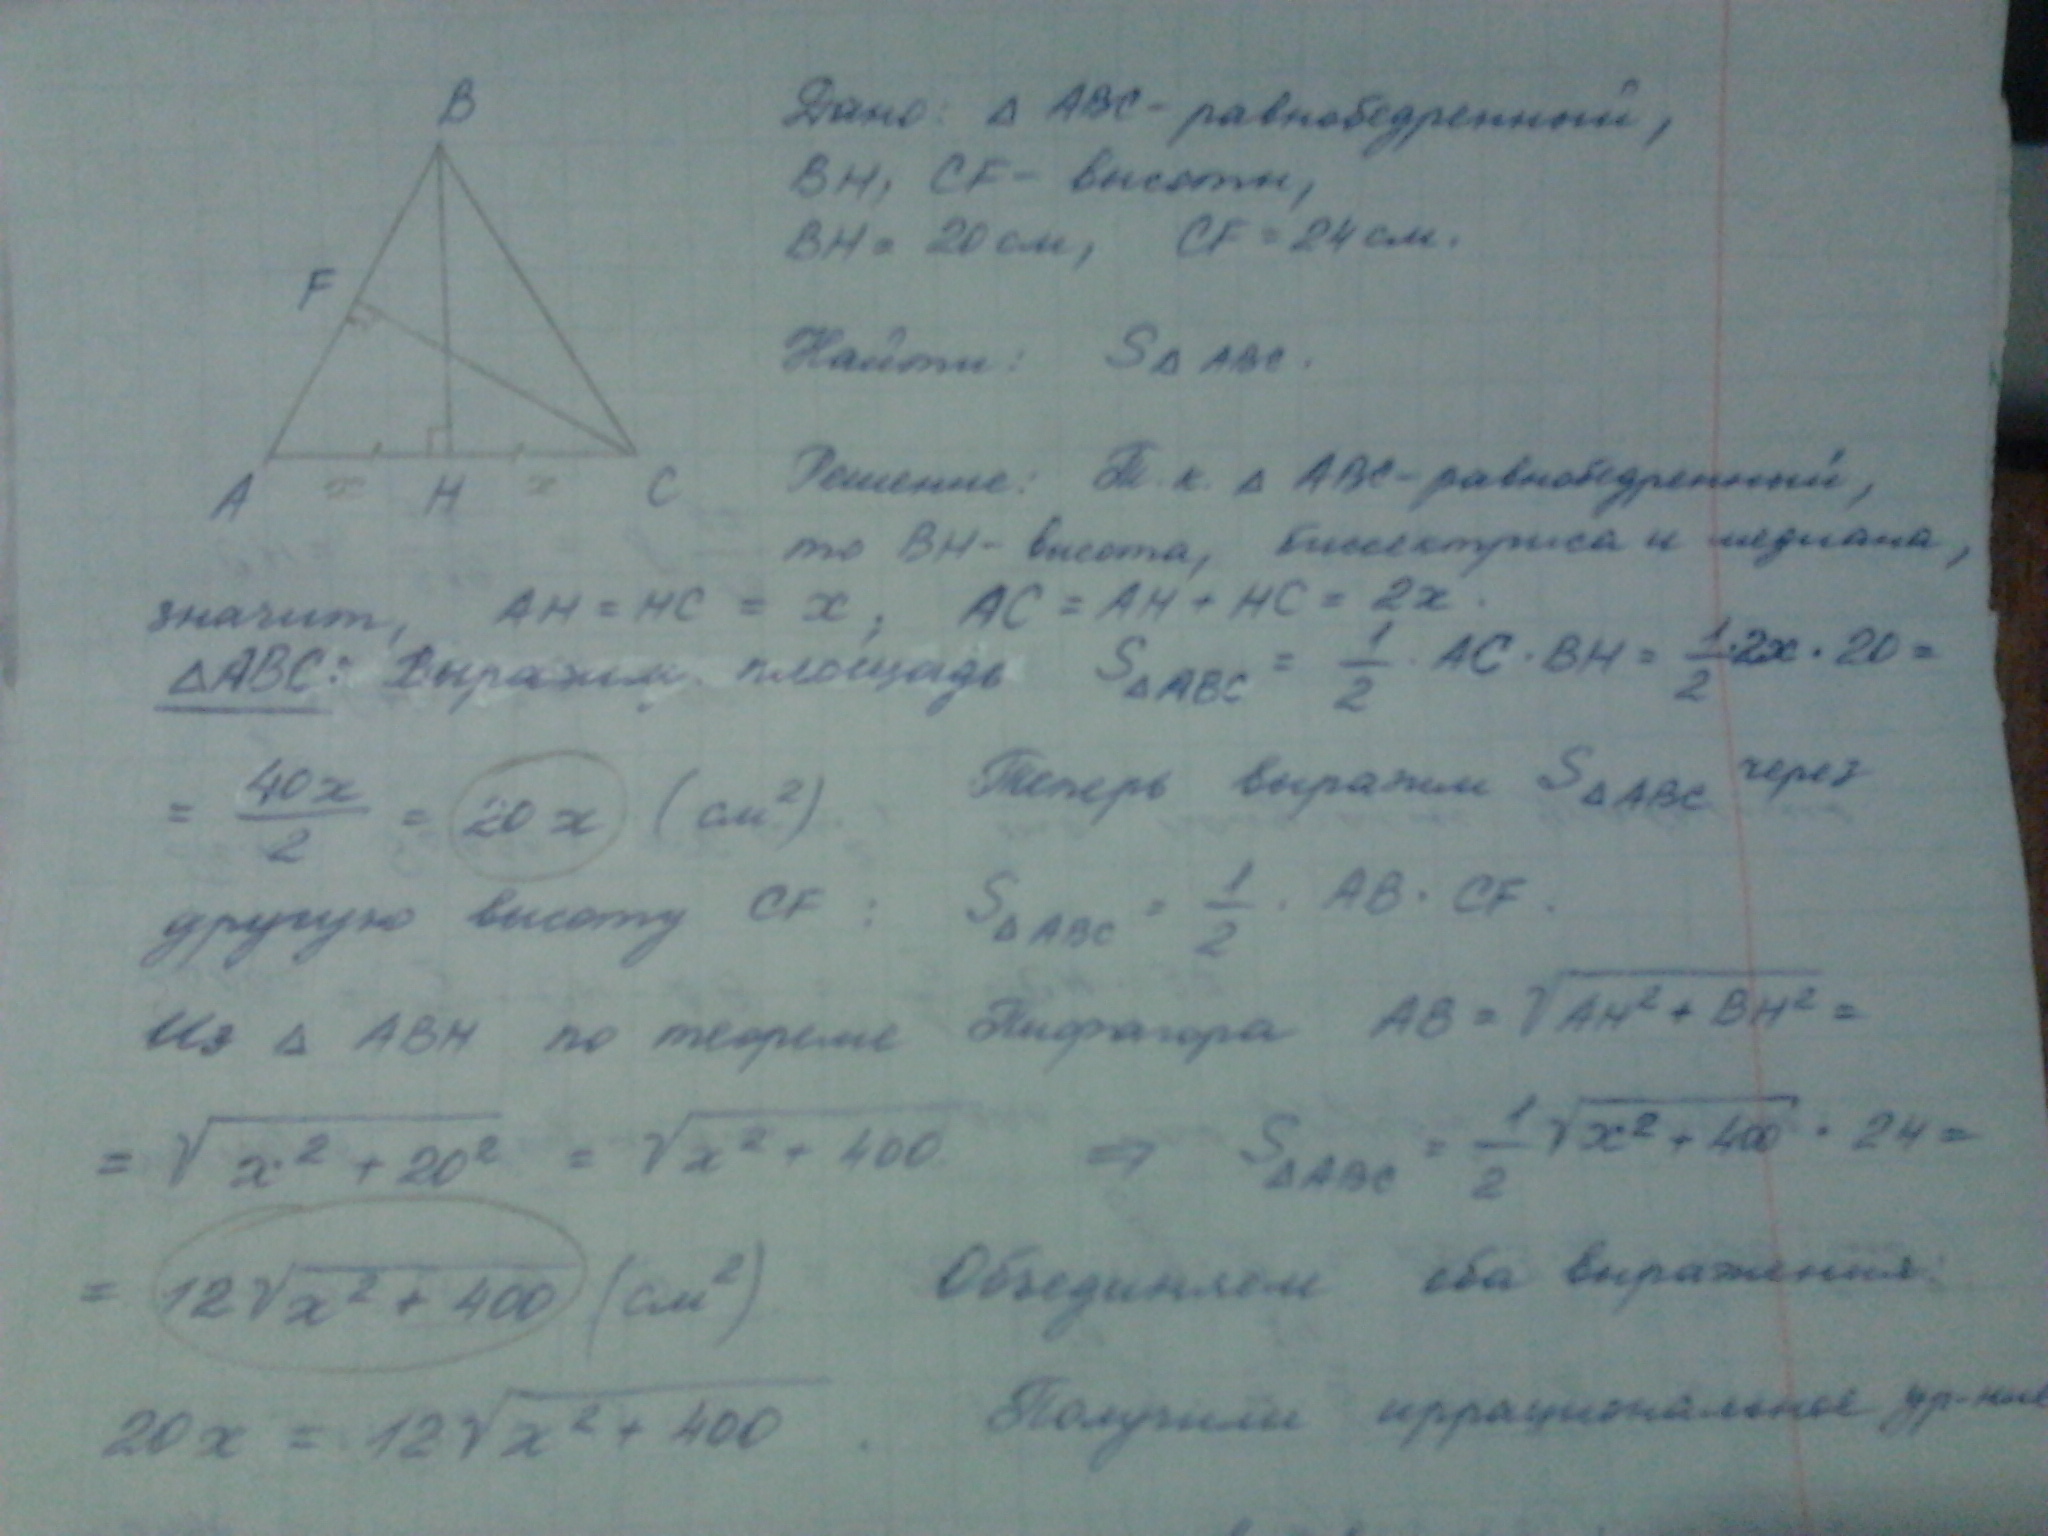 B
F
A x H x C
Дано: Δ ABC - равнобедренный,
BH, CF - высоты,
BH = 20 см, CF = 24 см.
Найти: S Δ ABC.
Решение: Т. к. Δ ABC - равнобедренный,
то BH - высота, биссектриса и медиана,
значит, AH = HC = x, AC = AH + HC = 2x.
ΔABC: Выразим площадь S ΔABC = 1/2 · AC · BH = 1/2 · 2x · 20 =
= 40x/2 = 20x (см²). Теперь выразим S ΔABC через
другую высоту CF: S ΔABC = 1/2 · AB · CF.
Из Δ ABH по теореме Пифагора AB = √(AH² + BH²) =
= √(x² + 20²) = √(x² + 400) ⇒ S ΔABC = 1/2 √(x² + 400) · 24 =
= 12√(x² + 400) (см²) Объединяем оба выражения:
20x = 12√(x² + 400). Получили иррациональное ур-ние